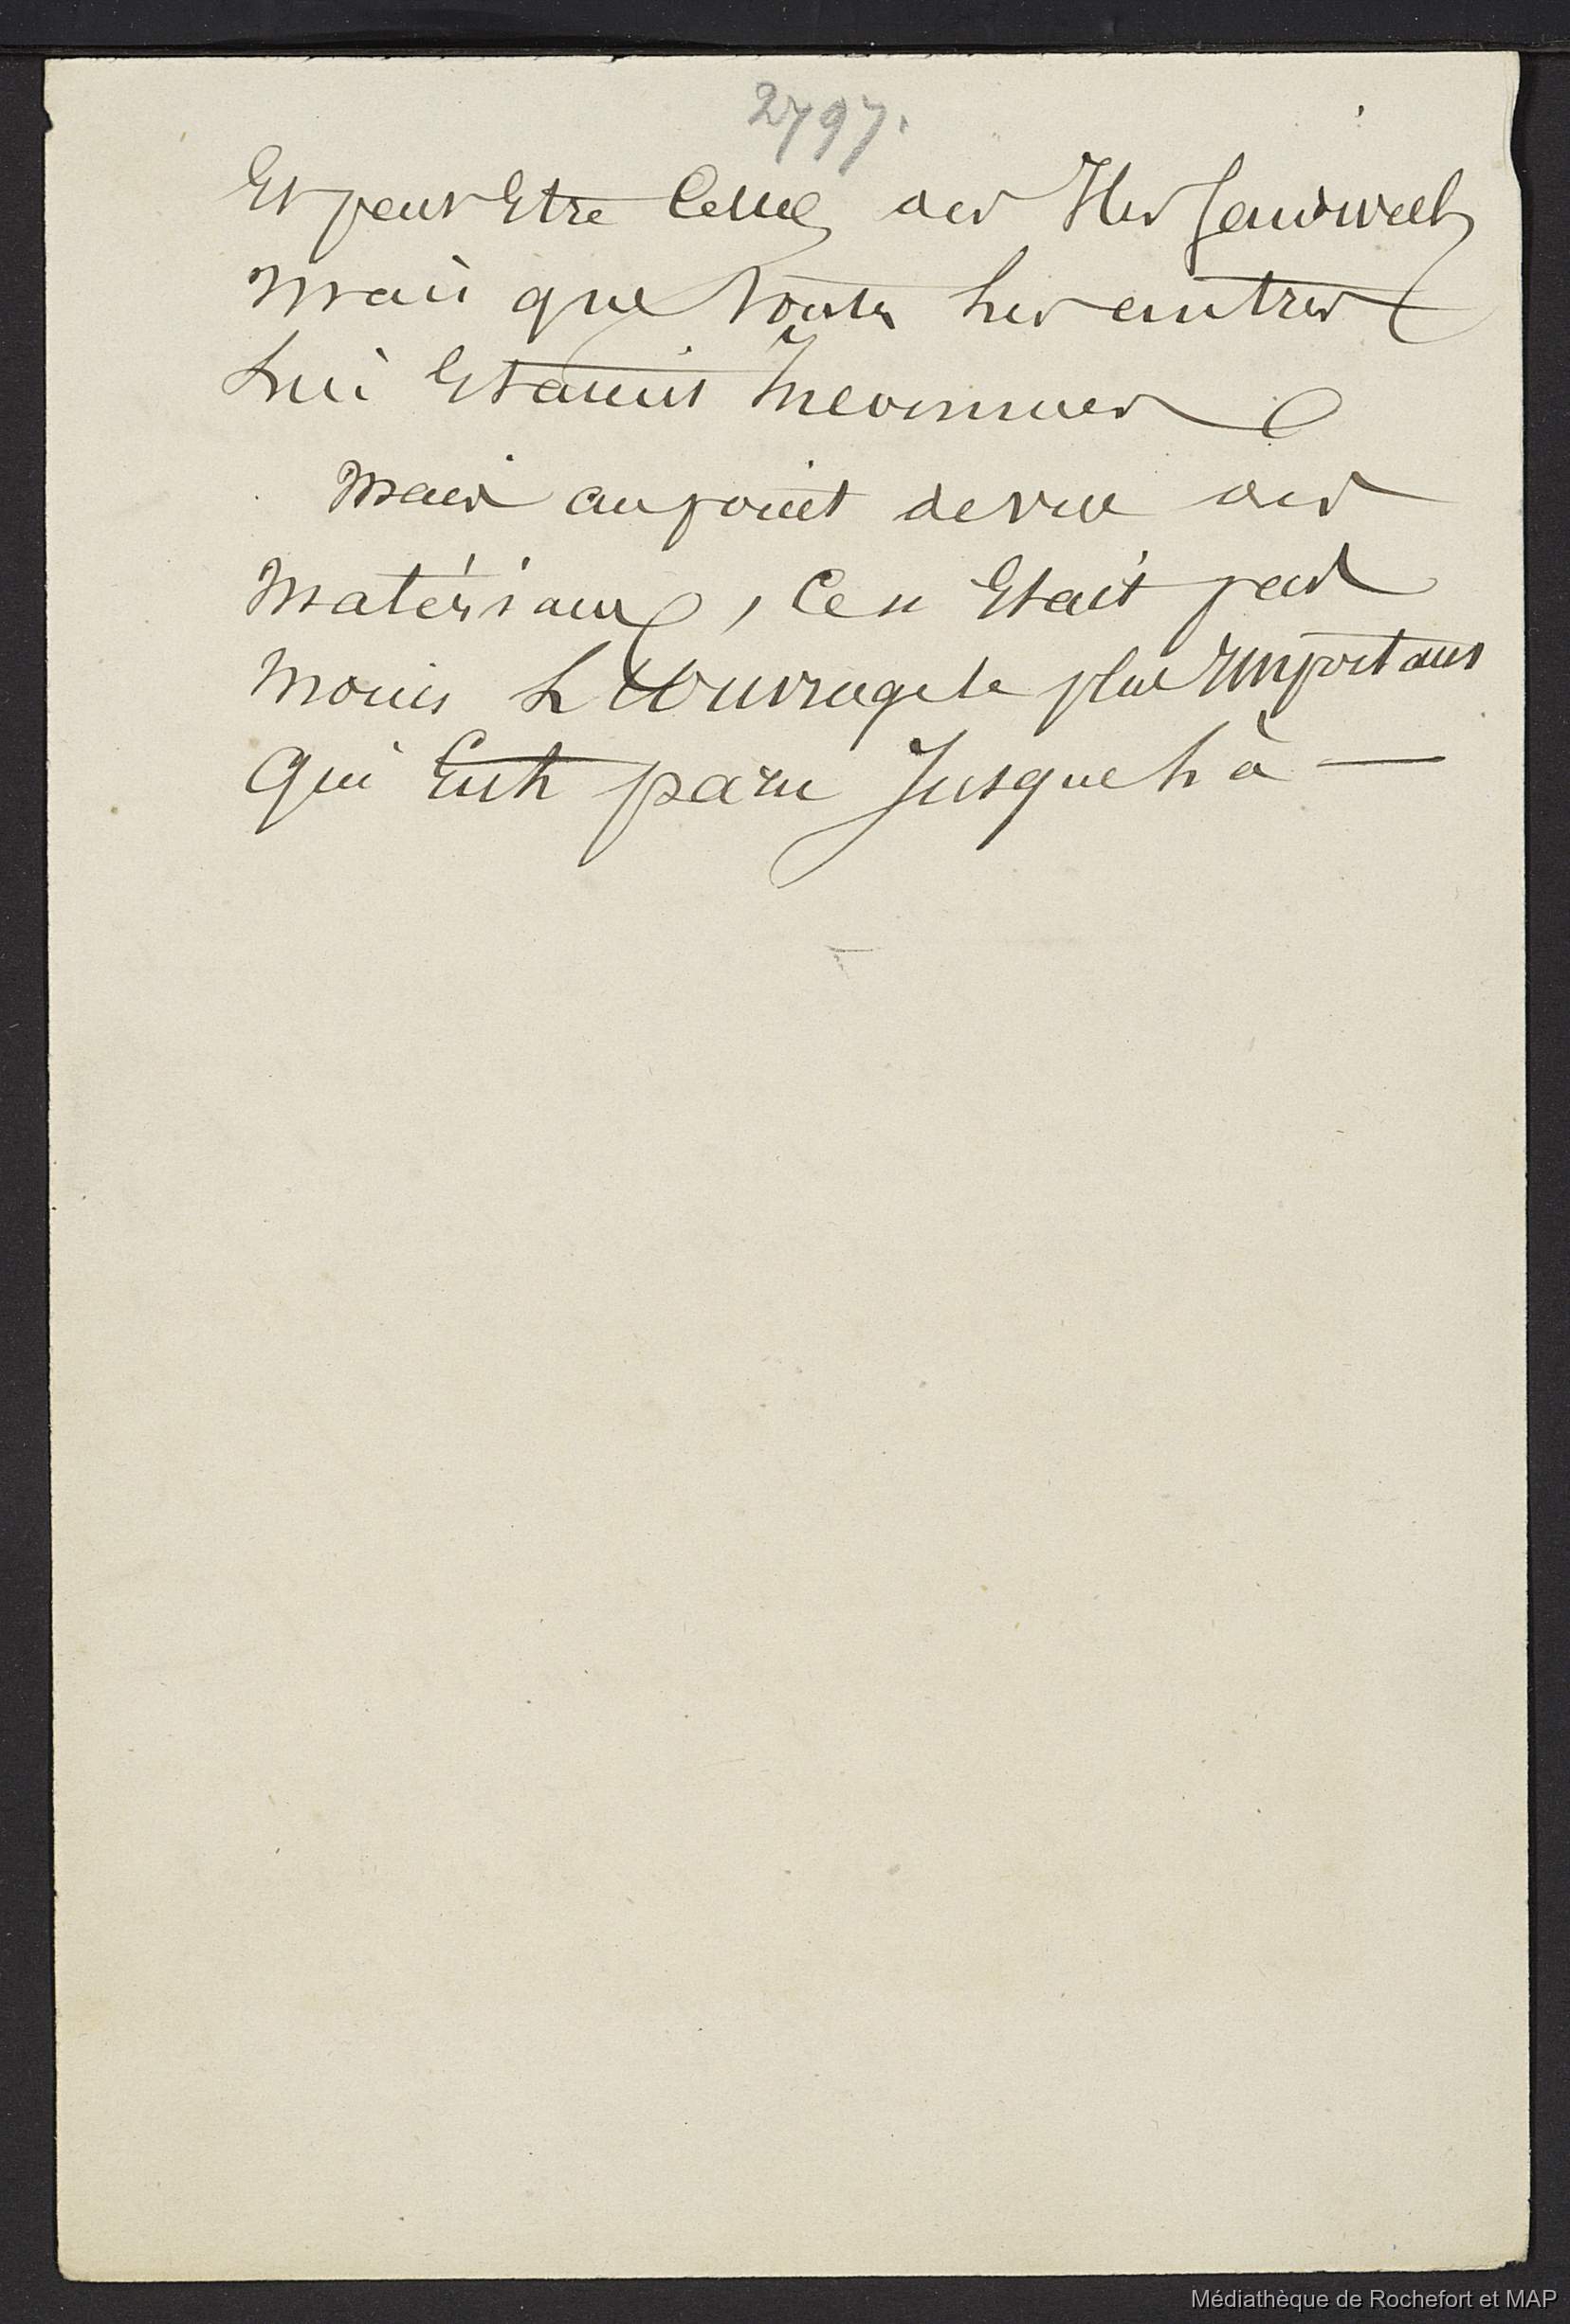 2797.
Et peut Etre Celle des Iles Sandwich
Mais que toutes Les autres
Lui Etaient Inconnues
Mais au point de vue des
Matériaux, Ce n'Etait pas
Moins L'Ouvrage le plus Important
Qui Eut paru Jusque Là —
Médiathèque de Rochefort et MAP